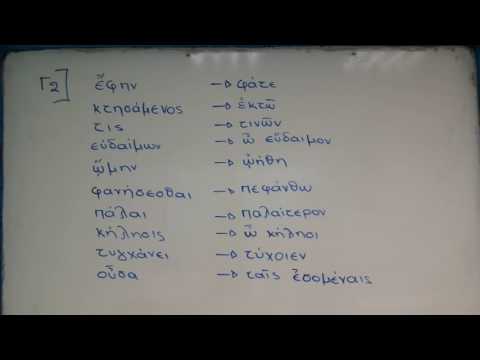 Γ2] ἔφην → φάτε
κτησάμενος → ἐκτῶ
τις → τινῶν
εὐδαίμων → ὦ εὔδαιμον
ᾤμην → ᾠήθη
φανήσεσθαι → πεφάνθω
πάλαι → παλαίτερον
κήλησις → ὦ κήλησι
τυγχάνει → τύχοιεν
οὖσα → ταῖς ἐσομέναις